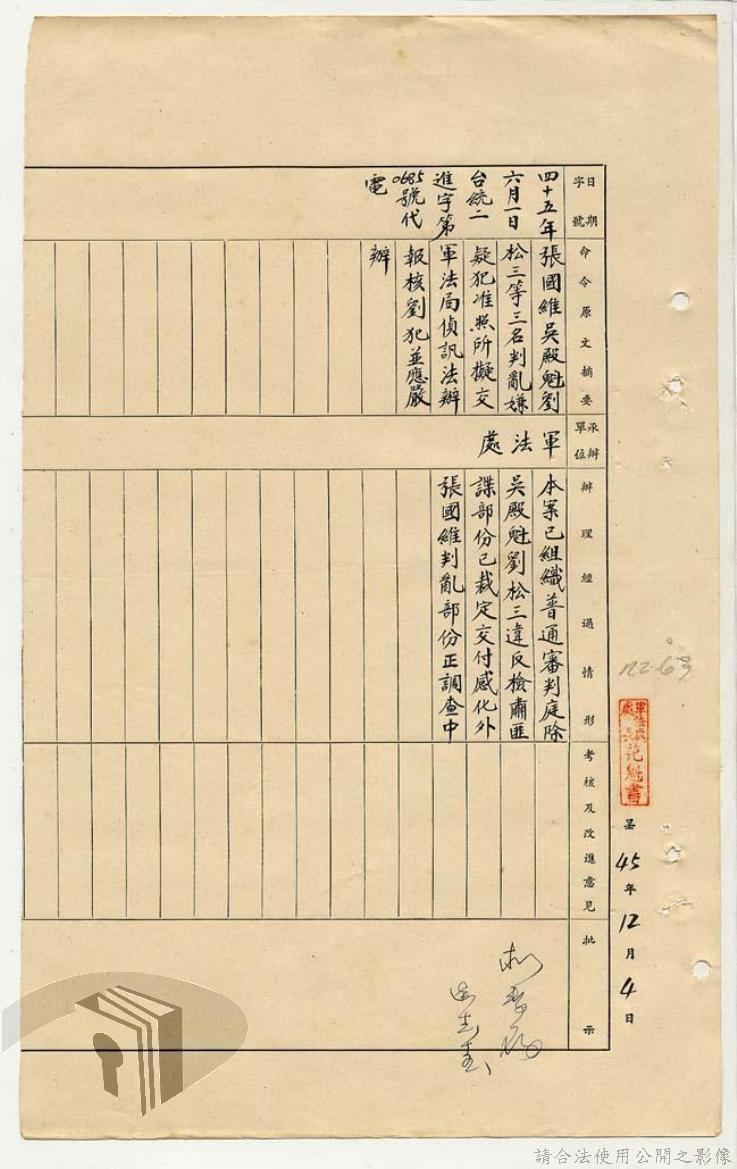 呈45年12月4日
日期
字號
命令原文摘要
承辦
單位
辦理經過情形
考核及改進意見
批示
四十五年
六月一日
台統二
進字第
0685號代
電
張國維吳殿魁劉
松三等三名判亂嫌
疑犯准照所擬交
軍法局偵訊法辦
報核劉犯並應嚴
辦
軍法處
本案已組織普通審判庭除
吳殿魁劉松三違反檢肅匪
諜部份已裁定交付感化外
張國維判亂部份正調查中
請合法使用公開之影像